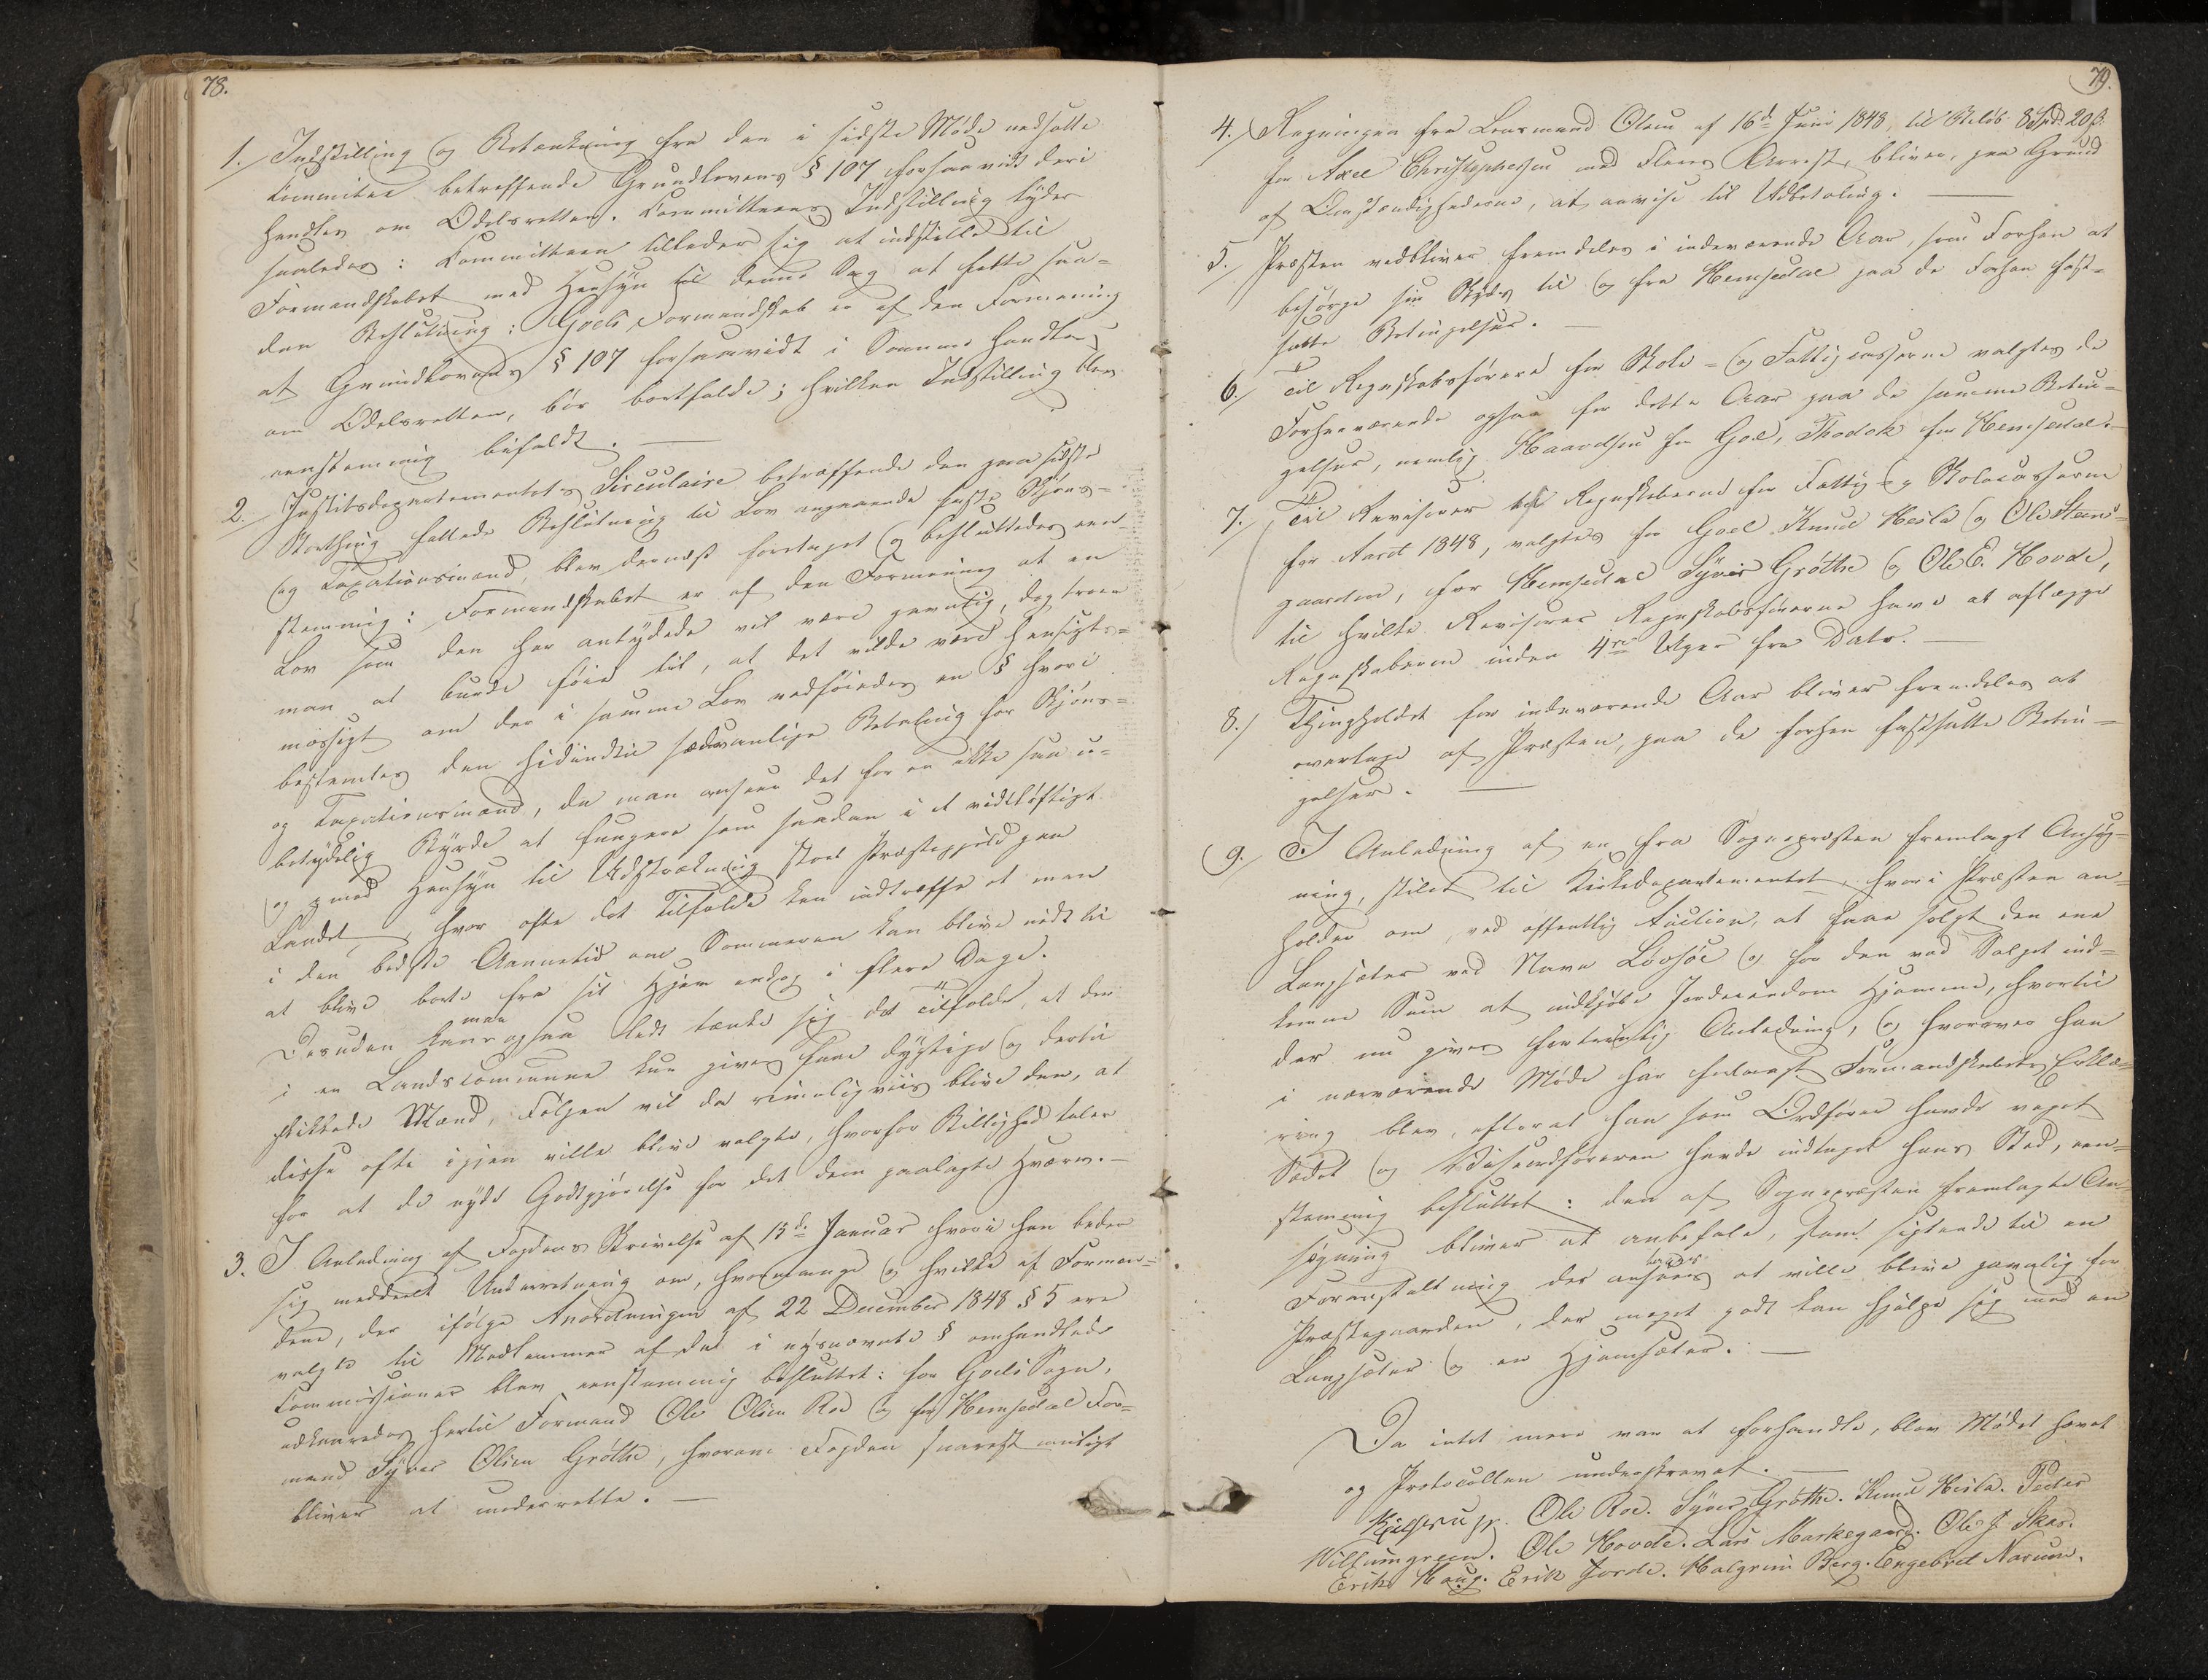 78.
1. Indstilling og Betænkning fra den i sidste Møde nedsatte
Commitee betreffende Grundlovens § 107 forsaavidt deri
handles om Odelsretten. Committeens Indstilling lyder
saaledes: Committeen tillader sig at indstille til
Formandskabet med Hensyn til denne Sag at fatte saa-
dan Beslutning: Goels Formandskab er af den Formening
at Grundlovens § 107 forsaavidt i Samme handles
om Odelsretten, bør bortfalde; hvilken Indstilling blev
eenstemmig bifaldt. —
2. Justitsdepartementets Circulaire betræffende den paa sidste
Storthing fattede Beslutning til Lov angaaende faste Skjøns-
og Taxationsmænd, blev dernæst foretaget og besluttedes een-
stemmig: Formandskabet er af den Formening at en
Lov som den her antydede vil være gavnlig, dog troer
man at burde føie til, at det vilde være hensigts-
mæssigt om der i samme Lov vedføiedes en § hvori
bestemtes den hidindtil sædvanlige Betaling for Skjøns-
og Taxationsmænd, da man anseer det for en ikke saa u-
betydelig Byrde at fungere som saadan i et vidtløftigt
og med Hensyn til Udstrækning stort Præstegjeld paa
Landet, hvor ofte det Tilfælde kan indtræffe at man
i den bedste Aannetid om Sommeren kan blive nødt til
at blive borte fra sit Hjem endog i flere Dage.
Desuden kan man ogsaa let tænke sig det Tilfælde, at der
i en Landscommune kun gives faae dygtige og dertil
skikkede Mænd, Følgen vil da rimeligviis blive den, at
disse ofte igjen ville blive valgte, hvorfor Billighed taler
for at de nyde Godtgjørelse for det dem paalagte Hverv. —
3. I Anledning af Fogdens Skrivelse af 13de Januar hvori han beder
sig meddeelt Underretning om, hvormange og hvilke af Formæn-
dene, der ifølge Anordningen af 22 December 1848 § 5 ere
valgte til Medlemmer af de i nysnævnte § omhandlede
Commissioner blev eenstemmig besluttet: for Goels Sogn,
udkaaredes hertil Formand Ole Olsen Roe og for Hemsedal For-
mand Syver Olsen Grøthe, hvorom Fogden snarest muligt
bliver at underrette. —
79.
4. Regningen fra Lensmand Olsen af 16d Juni 1848, til Beløb 8 Spd. 20 ß
for Axel Christophersen med Fleres Arrest, bliver, paa Grund
af Omstændighederne, at anvise til Udbetaling. —
5. Præsten vedbliver fremdeles i indeværende Aar, som Forhen at
besørge sin Skyds til og fra Hemsedal paa de forhen fast-
satte Betingelser. —
6. Til Regnskabsførere for Skole- og Fattigcasserne valgtes de
Forhenværende ogsaa for dette Aar paa de samme Betin-
gelser, nemlig Haavelsen for Goel, Thodok for Hemsedal. —
7. Til Revisorer ved Regnskaberne for Fattig- og Skolecasserne
for Aaret 1848, valgtes for Goel Knud Hesla og Ole Steins-
gaarden, for Hemsedal Syver Grøthe og Ole E. Hovde,
til hvilke Revisorer Regnskabsførerne have at aflægge
Regnskaberne inden 4re Uger fra Dato. —
8. Thingholdet for indeværende Aar bliver fremdeles at
overtage af Præsten, paa de forhen fastsatte Betin-
gelser. —
9. I Anledning af en fra Sognepræsten fremlagt Ansøg-
ning, stilet til Kirkedepartementet, hvori Præsten an-
holder om, ved offentlig Auction, at faae solgt den ene
Langsæter ved Navn Løvsøe og for den ved Salget ind-
komne Sum at indkjøbe Jordeiendom Hjemme, hvortil
der nu gives fortrinlig Anledning, og hvorover han
i nærværende Møde har forlangt Formandskabets Erklæ-
ring blev, efterat han som Ordfører havde veget
Sædet og Viceordføreren havde indtaget hans Sted, een-
stemmig besluttet: den af Sognepræsten fremlagte An-
søgning bliver at anbefale, som sigtende til en
Foranstaltning der ansees at ville blive gavnlig for
Præstegaarden, der meget godt kan hjælpe sig med en
Langsæter og en Hjemsæter. —
Da intet mere var at forhandle, blev Mødet hævet
og Protocollen underskrevet. —
Ole Roe. Syver Grøthe. Knud Hesla. Peder
Ole Hovde. Lars Markegaard. Ole J. Skar.
Erik Haug. Erik Jorde. Halgrim Berg. Engebret Narum.